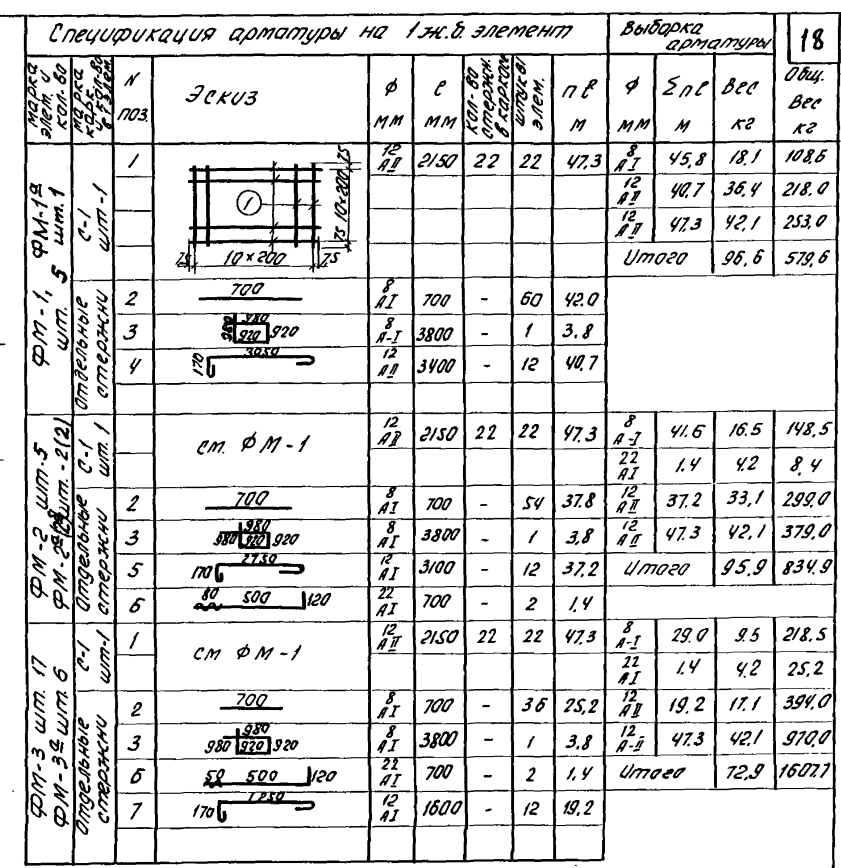 Спецификация арматуры на 1 ж.б. элемент Выборка арматуры 18
марка элем. и кол-во марка карк. кол-во в 1 элем. N поз. Эскиз ϕ мм ℓ мм кол-во стержн. в каркасе штук в 1 элем. n ℓ м ϕ мм Σnℓ м Вес кг Общ. Вес кг
ФМ-1, ФМ-1а
шт. 5 шт. 1
С-1 шт-1
1 12 АII 2150 22 22 47.3 8 АI 45,8 18,1 108,6
12 АII 40.7 36,4 218.0
12 АII 47.3 42,1 253,0
Итого 96,6 579,6
1
75 10×200 75
75 10×200 75
Отдельные стержни
2 700 8 АI 700 - 60 42.0
3 980 980 920 920 8 А-I 3800 - 1 3,8
4 170 3050 12 АII 3400 - 12 40,7
ФМ-2 шт.5
ФМ-2а шт.-2(2)
С-1 шт. 1
см. ФМ-1 12 АII 2150 22 22 47,3 8 А-I 41.6 16.5 148,5
22 АI 1.4 4.2 8,4
Отдельные стержни
2 700 8 АI 700 - 54 37.8 12 АII 37.2 33,1 299.0
3 980 980 920 920 8 АI 3800 - 1 3,8 12 АII 47.3 42,1 379,0
5 170 2750 12 АI 3100 - 12 37,2 Итого 95,9 834,9
6 80 500 120 22 АI 700 - 2 1,4
ФМ-3 шт. 17
ФМ-3а шт. 6
С-1 шт-1
1 см ФМ-1 12 АII 2150 22 22 47.3 8 А-I 29.0 9.5 218.5
22 АI 1.4 4.2 25,2
Отдельные стержни
2 700 8 АI 700 - 36 25,2 12 АII 19,2 17.1 394,0
3 980 980 920 920 8 АI 3800 - 1 3,8 12 А-II 47.3 42.1 970,0
6 50 500 120 22 АI 700 - 2 1,4 Итого 72,9 1607.7
7 170 1250 12 АI 1600 - 12 19,2